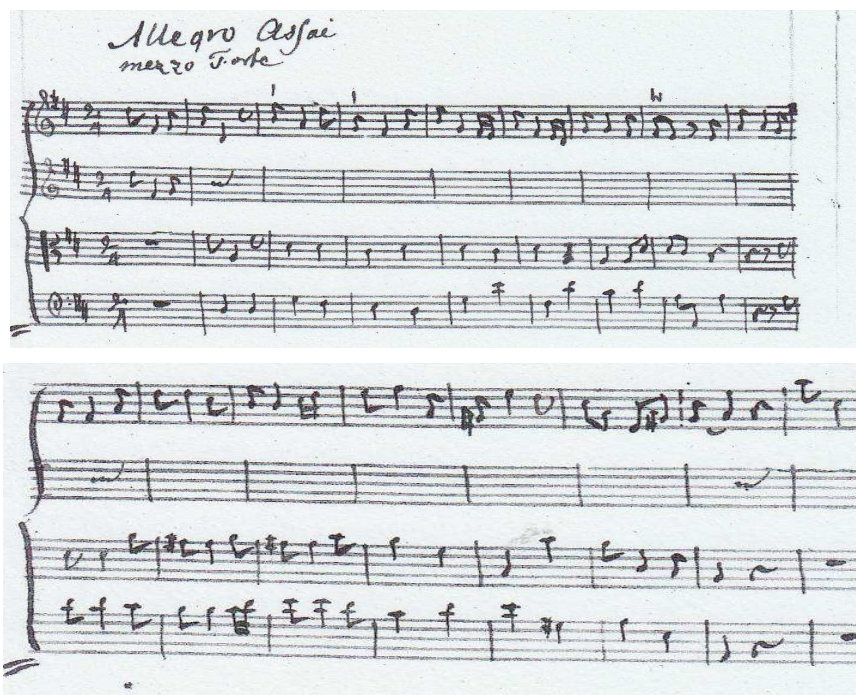 Allegro Assai
mezzo Forte